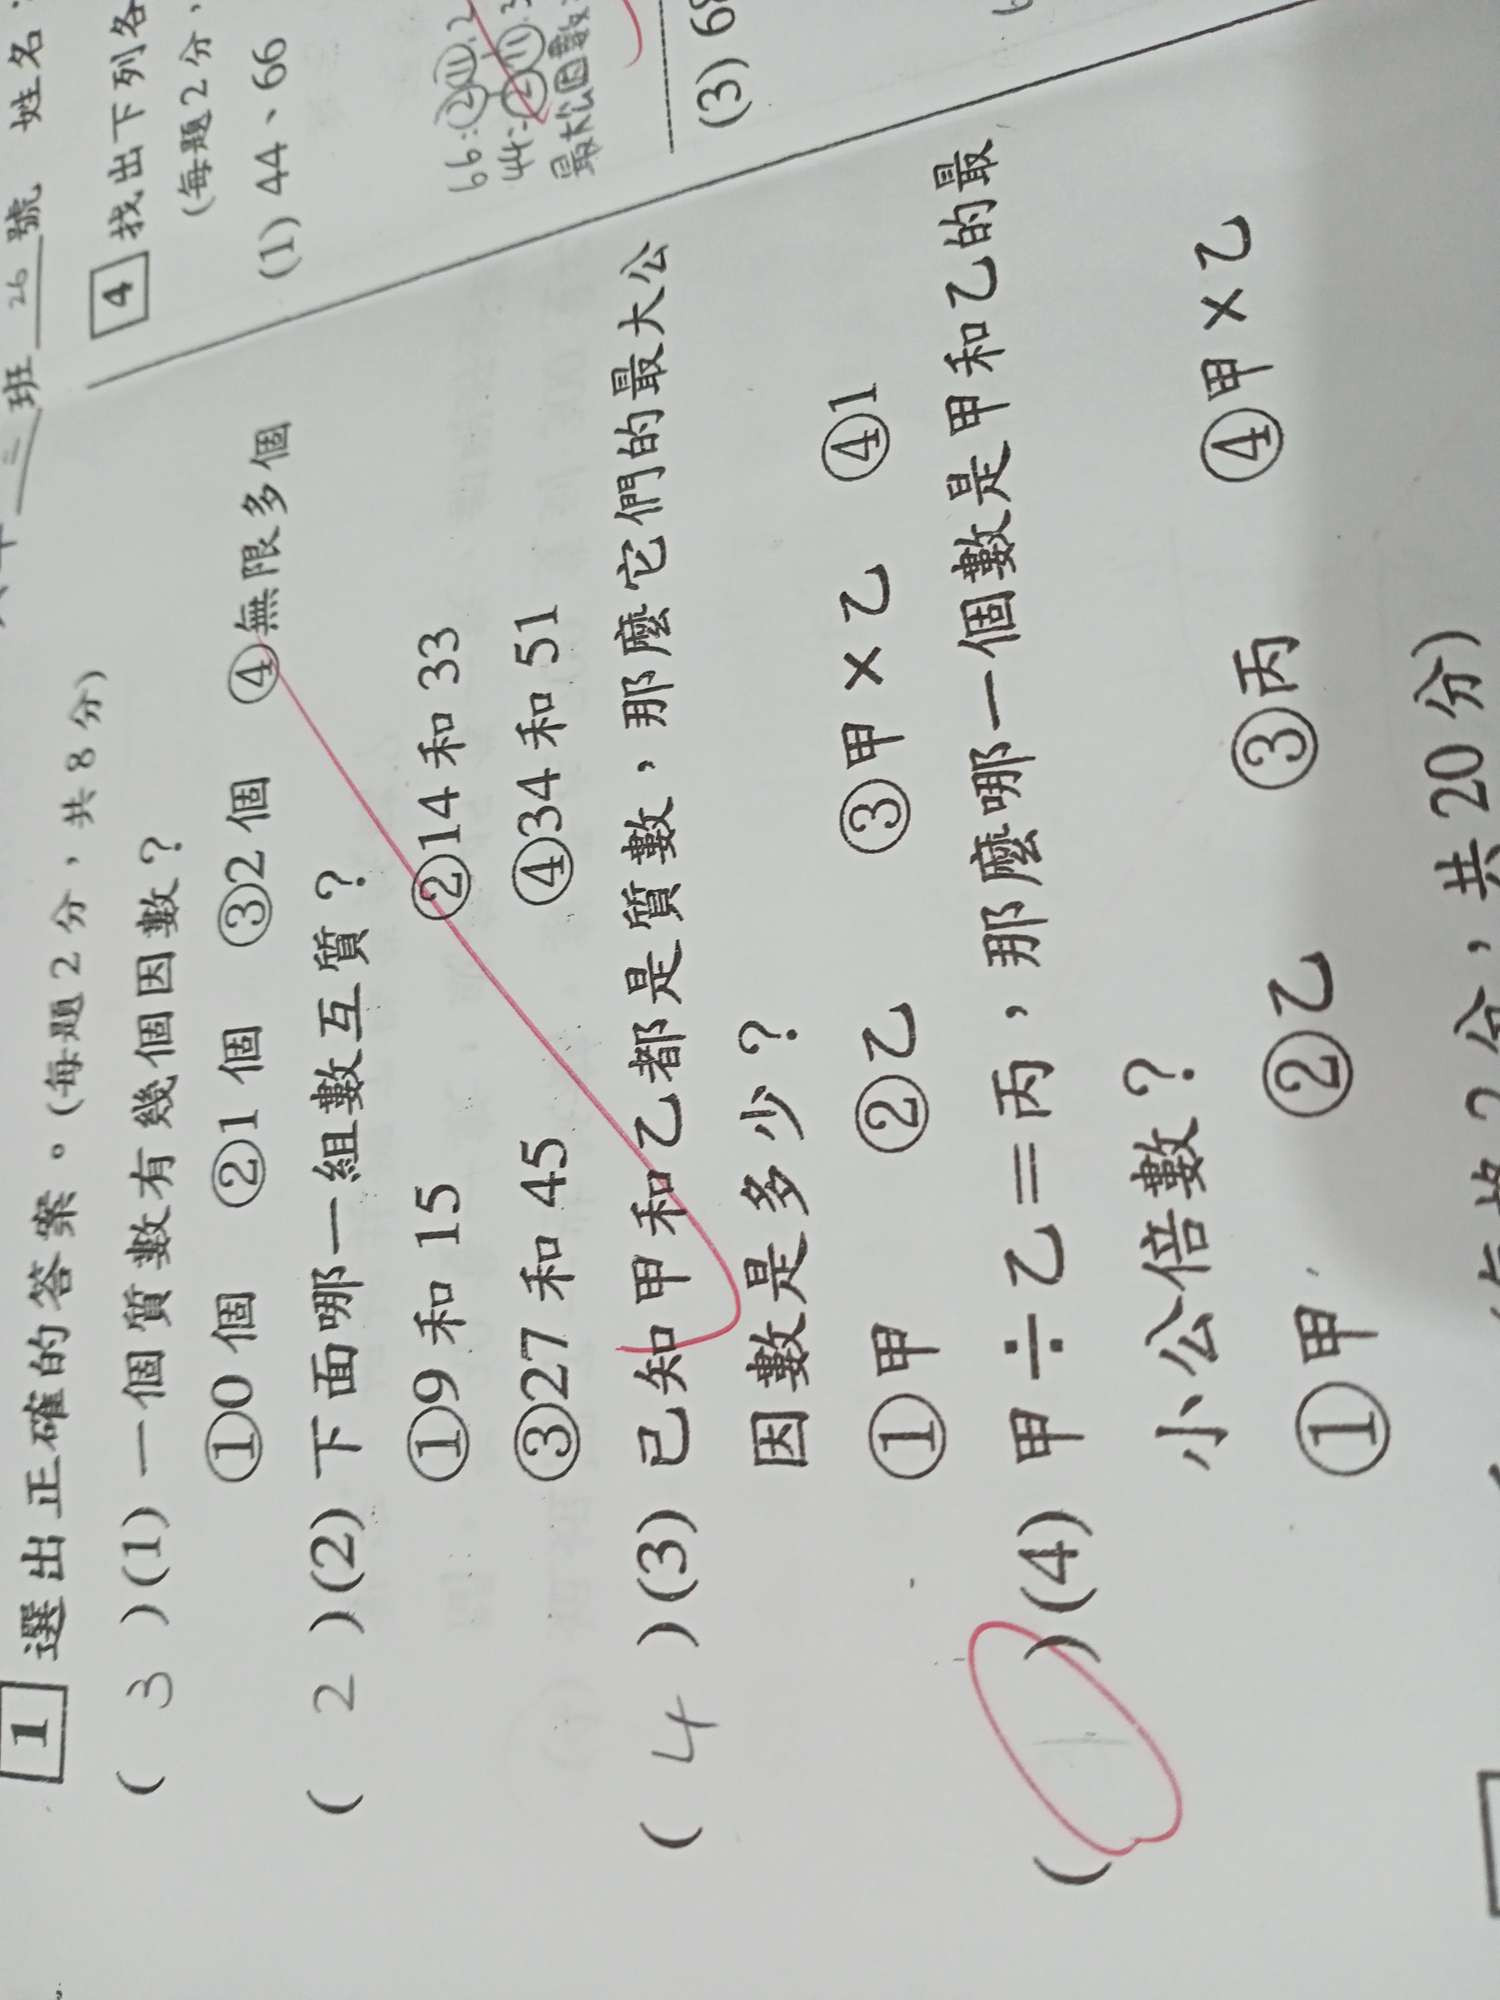 班 26 號 姓名:
1 選出正確的答案。(每題2分,共8分)
( 3 )(1) 一個質數有幾個因數?
①0個 ②1個 ③2個 ④無限多個
( 2 )(2) 下面哪一組數互質?
①9和15 ②14和33
③27和45 ④34和51
( 4 )(3) 已知甲和乙都是質數,那麼它們的最大公
因數是多少?
①甲 ②乙 ③甲×乙 ④1
( )(4) 甲÷乙=丙,那麼哪一個數是甲和乙的最
小公倍數?
①甲 ②乙 ③丙 ④甲×乙
2分,共20分)
4 找出下列各
(每題2分,
(1) 44、66
66:②⑪.2
44:②⑪.
最大公因數
(3) 68